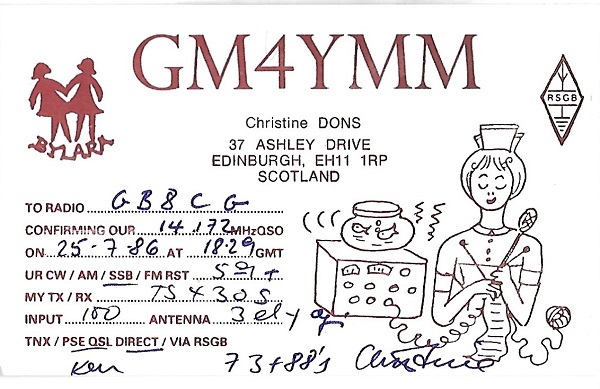 GM4YMM
BYLARA
RSGB
Christine DONS
37 ASHLEY DRIVE
EDINBURGH, EH11 1RP
SCOTLAND
TO RADIO GB8CG
CONFIRMING OUR 14.172 MHz QSO
ON 25-7-86 AT 18.29 GMT
UR CW / AM / SSB / FM RST 59+
MY TX / RX TS430S
INPUT 100 ANTENNA 3 el yagi
TNX / PSE QSL DIRECT / VIA RSGB
Ken 73+88's Christine